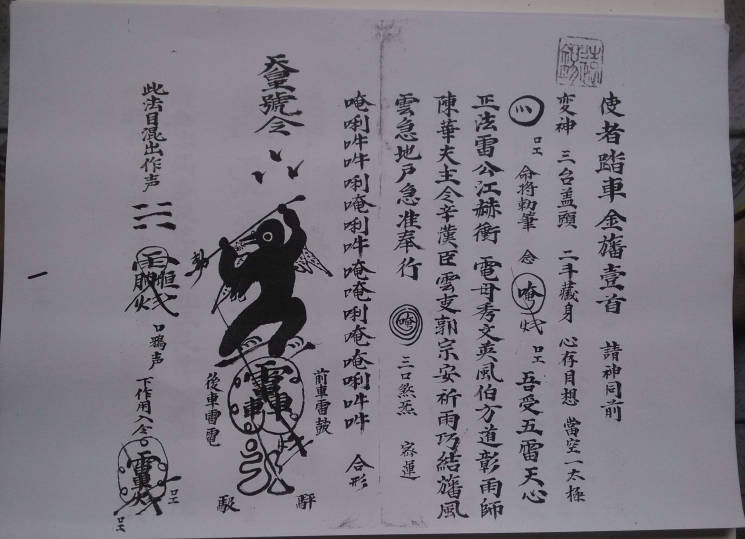 使者踏車金旛壹首 請神同前
変神 三台盖頭 二斗藏身 心存目想 當空一太極
命將勅筆 念 唵 吾受五雷天心
正法雷公江赫衝 電母秀文英風伯方道彰雨師
陳華夫主令辛漢臣雲吏郭宗安祈雨巧結旛風
雲急地戸急准奉行 唵 三口煞炁
唵唎吽吽唎唵唎吽唵唵唎唵唵唎吽吽 合形
天皇號令
前車雷鼓
後車雷電
此法目混出作声
口鴉声
下作用入令